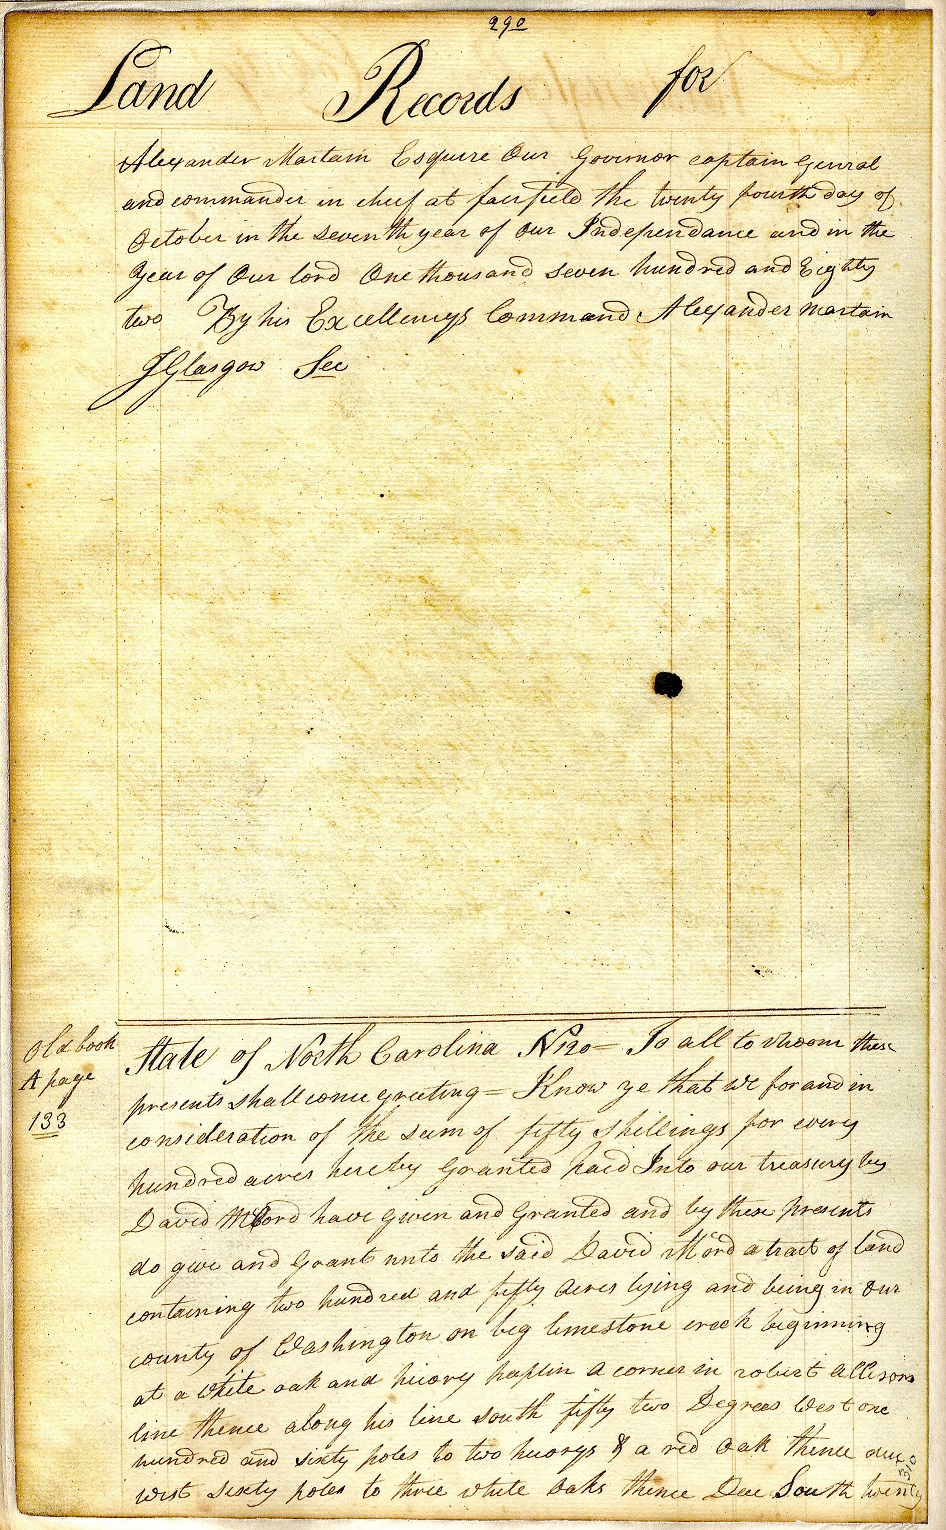 290
Land Records for
Alexander Martain Esquire Our Governor captain General
and commander in cheef at fairfield the twenty fourth day of
October in the seventh year of our Independance and in the
year of Our lord One thousand seven hundred and Eighty
two By his Excellencys Command Alexander Martain
J Glasgow Sec
Old book
A page
133
State of North Carolina No 120 = To all to whoom these
presents shall come greeting = Know ye that we for and in
consideration of the sum of fifty shillings for every
hundred acres hereby Granted paid Into our treasury by
David McCord have given and Granted and by these presents
do give and Grant unto the said David McCord a tract of land
containing two hundred and fifty acres lying and being in our
county of Washington on big limestone creek beginning
at a white oak and hicory saplin a corner in robert allisons
line thence along his line south fifty two Degrees West one
hundred and sixty poles to two hicorys & a red oak thence due
west sixty poles to three white oaks thence Due South twenty
310